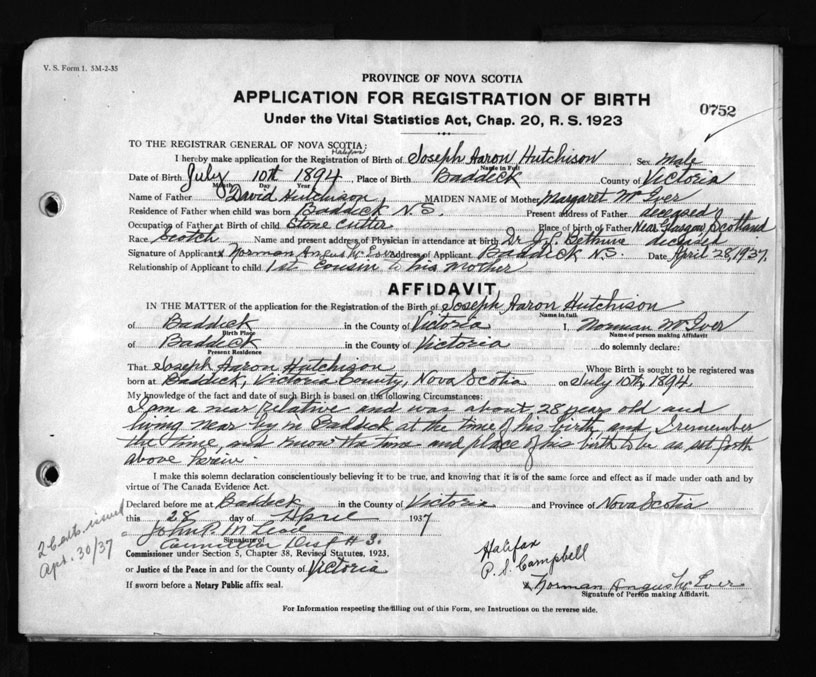 V. S. Form 1. 5M-2-35
PROVINCE OF NOVA SCOTIA
APPLICATION FOR REGISTRATION OF BIRTH
0752
Under the Vital Statistics Act, Chap. 20, R. S. 1923
TO THE REGISTRAR GENERAL OF NOVA SCOTIA:
Halifax
I hereby make application for the Registration of Birth of Joseph Aaron Hutchison Sex Male
Name in Full
Date of Birth July 10th 1894, Place of Birth Baddeck County of Victoria
Month Day Year
Name of Father David Hutchison MAIDEN NAME of Mother Margaret McIver
Residence of Father when child was born Baddeck N.S. Present address of Father deceased
Occupation of Father at Birth of child Stone Cutter Place of Birth of Father Near Glasgow, Scotland
Race Scotch Name and present address of Physician in attendance at birth Dr J. L. Bethune deceased
Signature of Applicant x Norman Angus McIver Address of Applicant Baddeck N.S. Date April 28, 1937.
Relationship of Applicant to child 1st Cousin to his Mother
AFFIDAVIT
IN THE MATTER of the application for the Registration of the Birth of Joseph Aaron Hutchison
Name in full
of Baddeck in the County of Victoria I, Norman McIver
Birth Place Name of person making Affidavit
of Baddeck in the County of Victoria do solemnly declare:
Present Residence
That Joseph Aaron Hutchison Whose Birth is sought to be registered was
born at Baddeck, Victoria County, Nova Scotia on July 10th, 1894
My knowledge of the fact and date of such Birth is based on the following Circumstances:
I am a near relative and was about 28 years old and
living near by in Baddeck at the time of his birth and I remember
the time, and know the time and place of his birth to be as set forth
above herein.
I make this solemn declaration conscientiously believing it to be true, and knowing that it is of the same force and effect as if made under oath and by
virtue of The Canada Evidence Act.
Declared before me at Baddeck in the County of Victoria and Province of Nova Scotia
this 28 day of April 1937
John P. McLeod
Signature of
Councillor Dist # 3.
Commissioner under Section 5, Chapter 38, Revised Statutes, 1923.
or Justice of the Peace in and for the County of Victoria
If sworn before a Notary Public affix seal.
2 Certs. issued
Apr. 30/37
Halifax
P. S. Campbell
x Norman Angus McIver
Signature of Person making Affidavit.
For Information respecting the filling out of this Form, see Instructions on the reverse side.